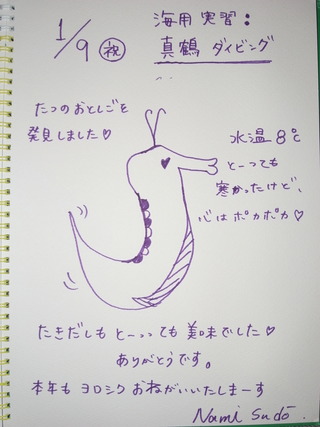 1/9 ㊗ 海用実習:
真鶴 ダイビング
たつのおとしごを
発見しました♡
水温 8℃
とーっても
寒かったけど、
心はポカポカ♡
たきだしも とーっっても 美味でした♡
ありがとうです。
本年も ヨロシク おねがいいたしまーす
Nami Sudō.